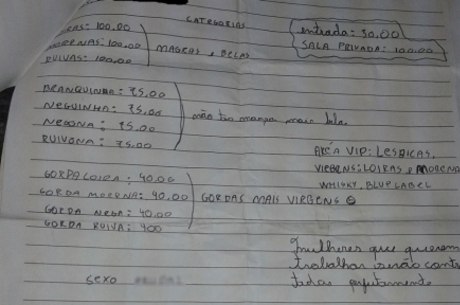 CATEGORIAS
RAS: 100,00
MORENAS: 100,00
RUIVAS: 100,00
MAGRAS e BELAS
entrada: 30,00
SALA PRIVADA: 100,00
BRANQUINHA: 75,00
NEGUINHA: 75,00
NEGONA: 75,00
RUIVONA: 75,00
não tão magra mais bela.
AREA VIP: LESBICAS,
VIRGENS: LOIRAS e MORENA
WHISKY, BLUE LABEL
GORDA LOIRA: 40,00
GORDA MORENA: 40,00
GORDA NEGA: 40,00
GORDA RUIVA: 400
GORDAS MAIS VIRGENS
mulheres que querem
trabalhar serão contra
tadas perfeitamente
SEXO